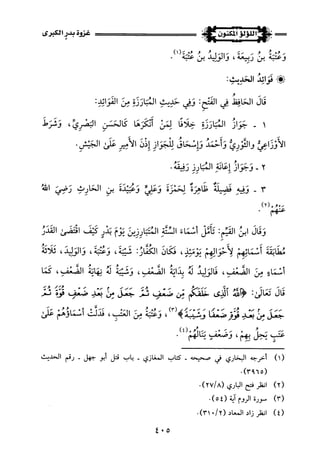 اللؤلؤ المكنون
غزوة بدر الكبرى
وَعُتْبَةُ بنُ رَبِيعَةَ، وَالوَلِيدُ بنُ عُتْبَةَ(١).
فَوَائِدُ الحَدِيثِ:
قَالَ الحَافِظُ فِي الفَتْحِ: وَفِي حَدِيثِ المُبَارَزَةِ مِنَ الفَوَائِدِ:
١ - جَوَازُ المُبَارَزَةِ خِلَافًا لِمَنْ أَنْكَرَهَا كَالحَسَنِ البَصْرِيِّ، وَشَرَطَ
الأَوْزَاعِيُّ وَالثَّوْرِيُّ وَأَحْمَدُ وَإِسْحَاقُ لِلْجَوَازِ إِذْنَ الأَمِيرِ عَلَى الجَيْشِ.
٢ - وَجَوَازُ إِعَانَةِ المُبَارِزِ رَفِيقَهُ.
٣ - وَفِيهِ فَضِيلَةٌ ظَاهِرَةٌ لِحَمْزَةَ وَعَلِيٍّ وَعُبَيْدَةَ بنِ الحَارِثِ رَضِيَ اللهُ
عَنْهُمْ(٢).
وَقَالَ ابنُ القَيِّمِ: تَأَمَّلْ أَسْمَاءَ السِّتَّةِ المُتَبَارِزِينَ يَوْمَ بَدْرٍ كَيْفَ اقْتَضَى القَدَرُ
مُطَابَقَةَ أَسْمَائِهِمْ لِأَحْوَالِهِمْ يَوْمَئِذٍ، فَكَانَ الكُفَّارُ: شَيْبَةَ، وَعُتْبَةَ، وَالوَلِيدَ، ثَلَاثَةُ
أَسْمَاءٍ مِنَ الضَّعْفِ، فَالوَلِيدُ لَهُ بِدَايَةُ الضَّعْفِ، وَشَيْبَةُ لَهُ نِهَايَةُ الضَّعْفِ، كَمَا
قَالَ تَعَالَى: ﴿اللَّهُ الَّذِي خَلَقَكُم مِّن ضَعْفٍ ثُمَّ جَعَلَ مِنْ بَعْدِ ضَعْفٍ قُوَّةً ثُمَّ
جَعَلَ مِنْ بَعْدِ قُوَّةٍ ضَعْفًا وَشَيْبَةً﴾(٣)، وَعُتْبَةُ مِنَ العَتْبِ، فَدَلَّتْ أَسْمَاؤُهُمْ عَلَى
عَتْبٍ يَحِلُّ بِهِمْ، وَضَعْفٍ يَنَالُهُمْ(٤).
(١) أخرجه البخاري في صحيحه - كتاب المغازي - باب قتل أبو جهل - رقم الحديث
(٣٩٦٥).
(٢) انظر فتح الباري (٢٧/٨).
(٣) سورة الروم آية (٥٤).
(٤) انظر زاد المعاد (٣١٠/٢).
٤٠٥